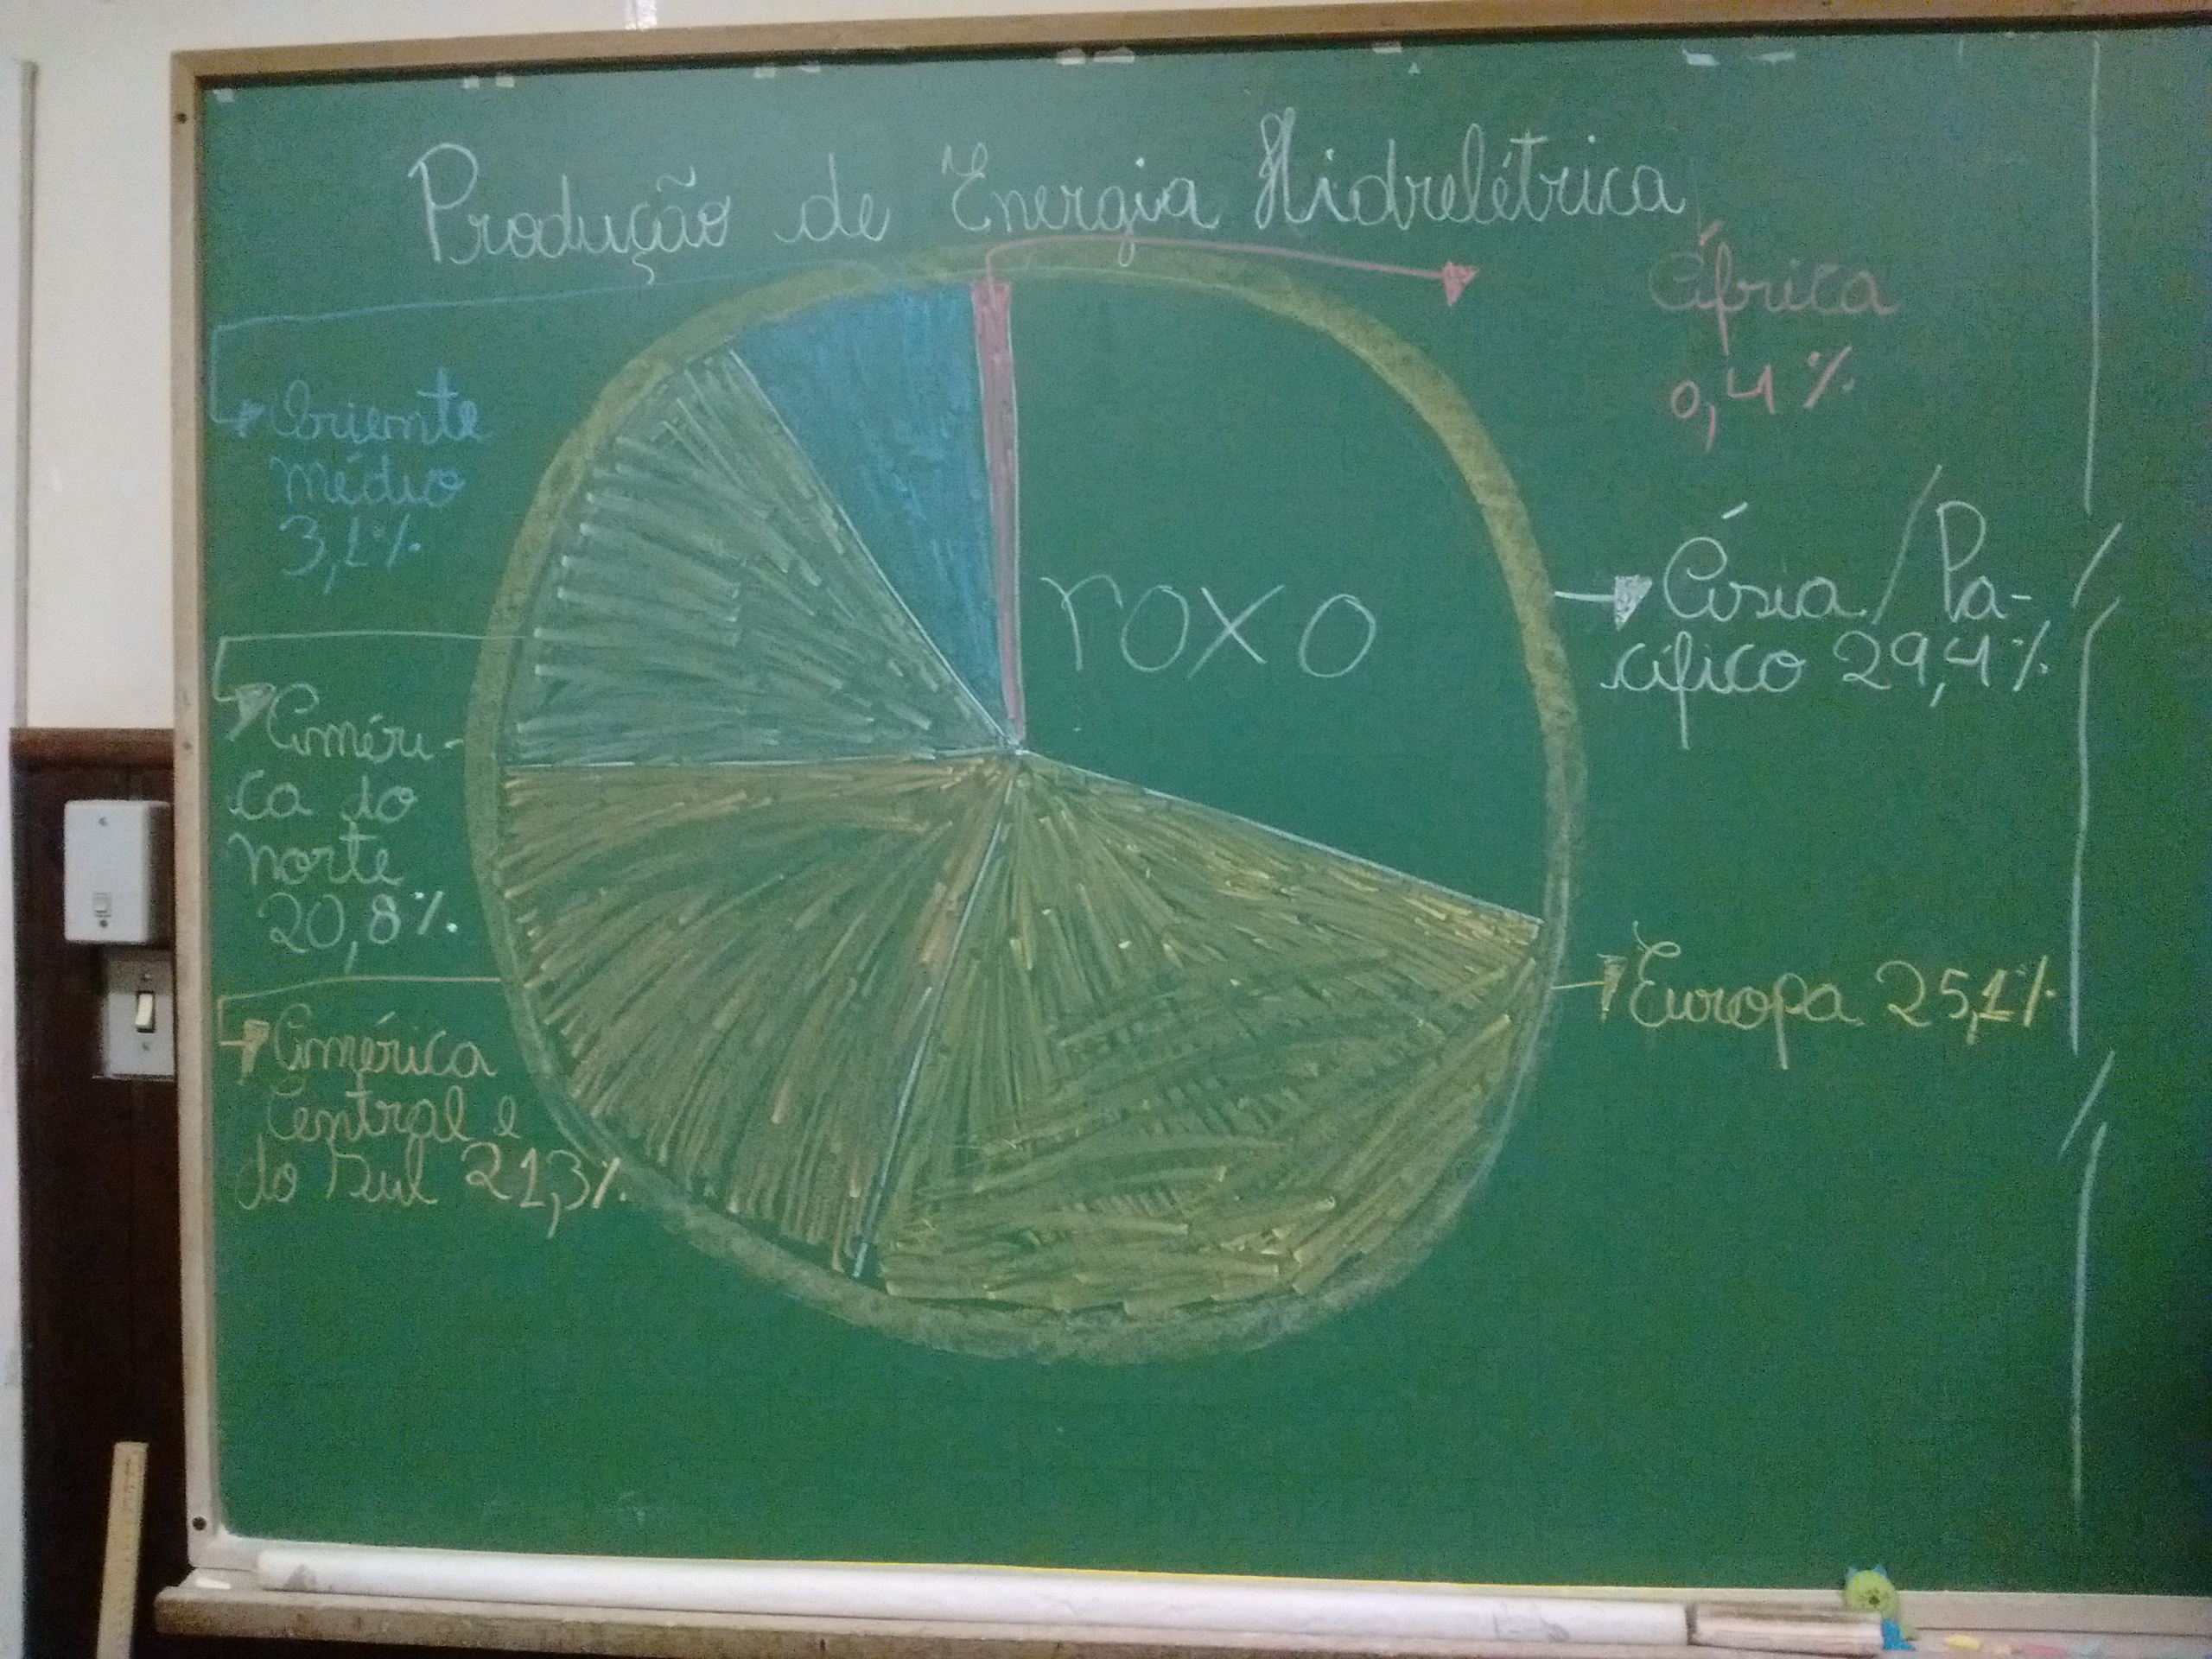 Produção de Energia Hidrelétrica
África
0,4%
Oriente
Médio
3,1%
roxo
Ásia / Pa-
cífico 29,4%
Améri-
ca do
Norte
20,8%
Europa 25,1%
América
Central e
do Sul 21,3%